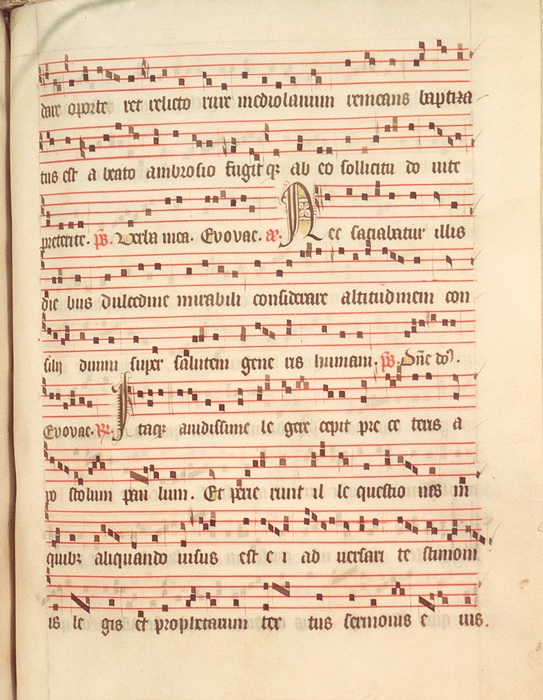 dare oporte ret relicto rure mediolanum remeans baptiza
tus est a beato ambrosio fugitqꝫ ab eo sollicitu do uite
preterite. ps. Verba mea. Evovae. aͣ. Nec saciabatur illis
die bus dulcedine mirabili considerare altitudinem con
silij diuini super salutem gene ris humani. ps. Dn̄e dn̄s.
Evovae. R. Itaqꝫ auidissime le gere cepit pre ce teris a
po stolum pau lum. Et perie runt il le questio nes in
quibꝫ aliquando uisus est e i ad uersari te stimoni
is le gis et prophetarum tex tus sermonis e ius.